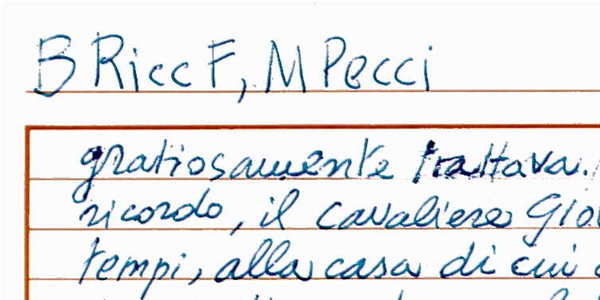 B Ricc F, M Pecci
gratiosamente trattava.
ricordo, il cavaliere
tempi, alla casa di cui